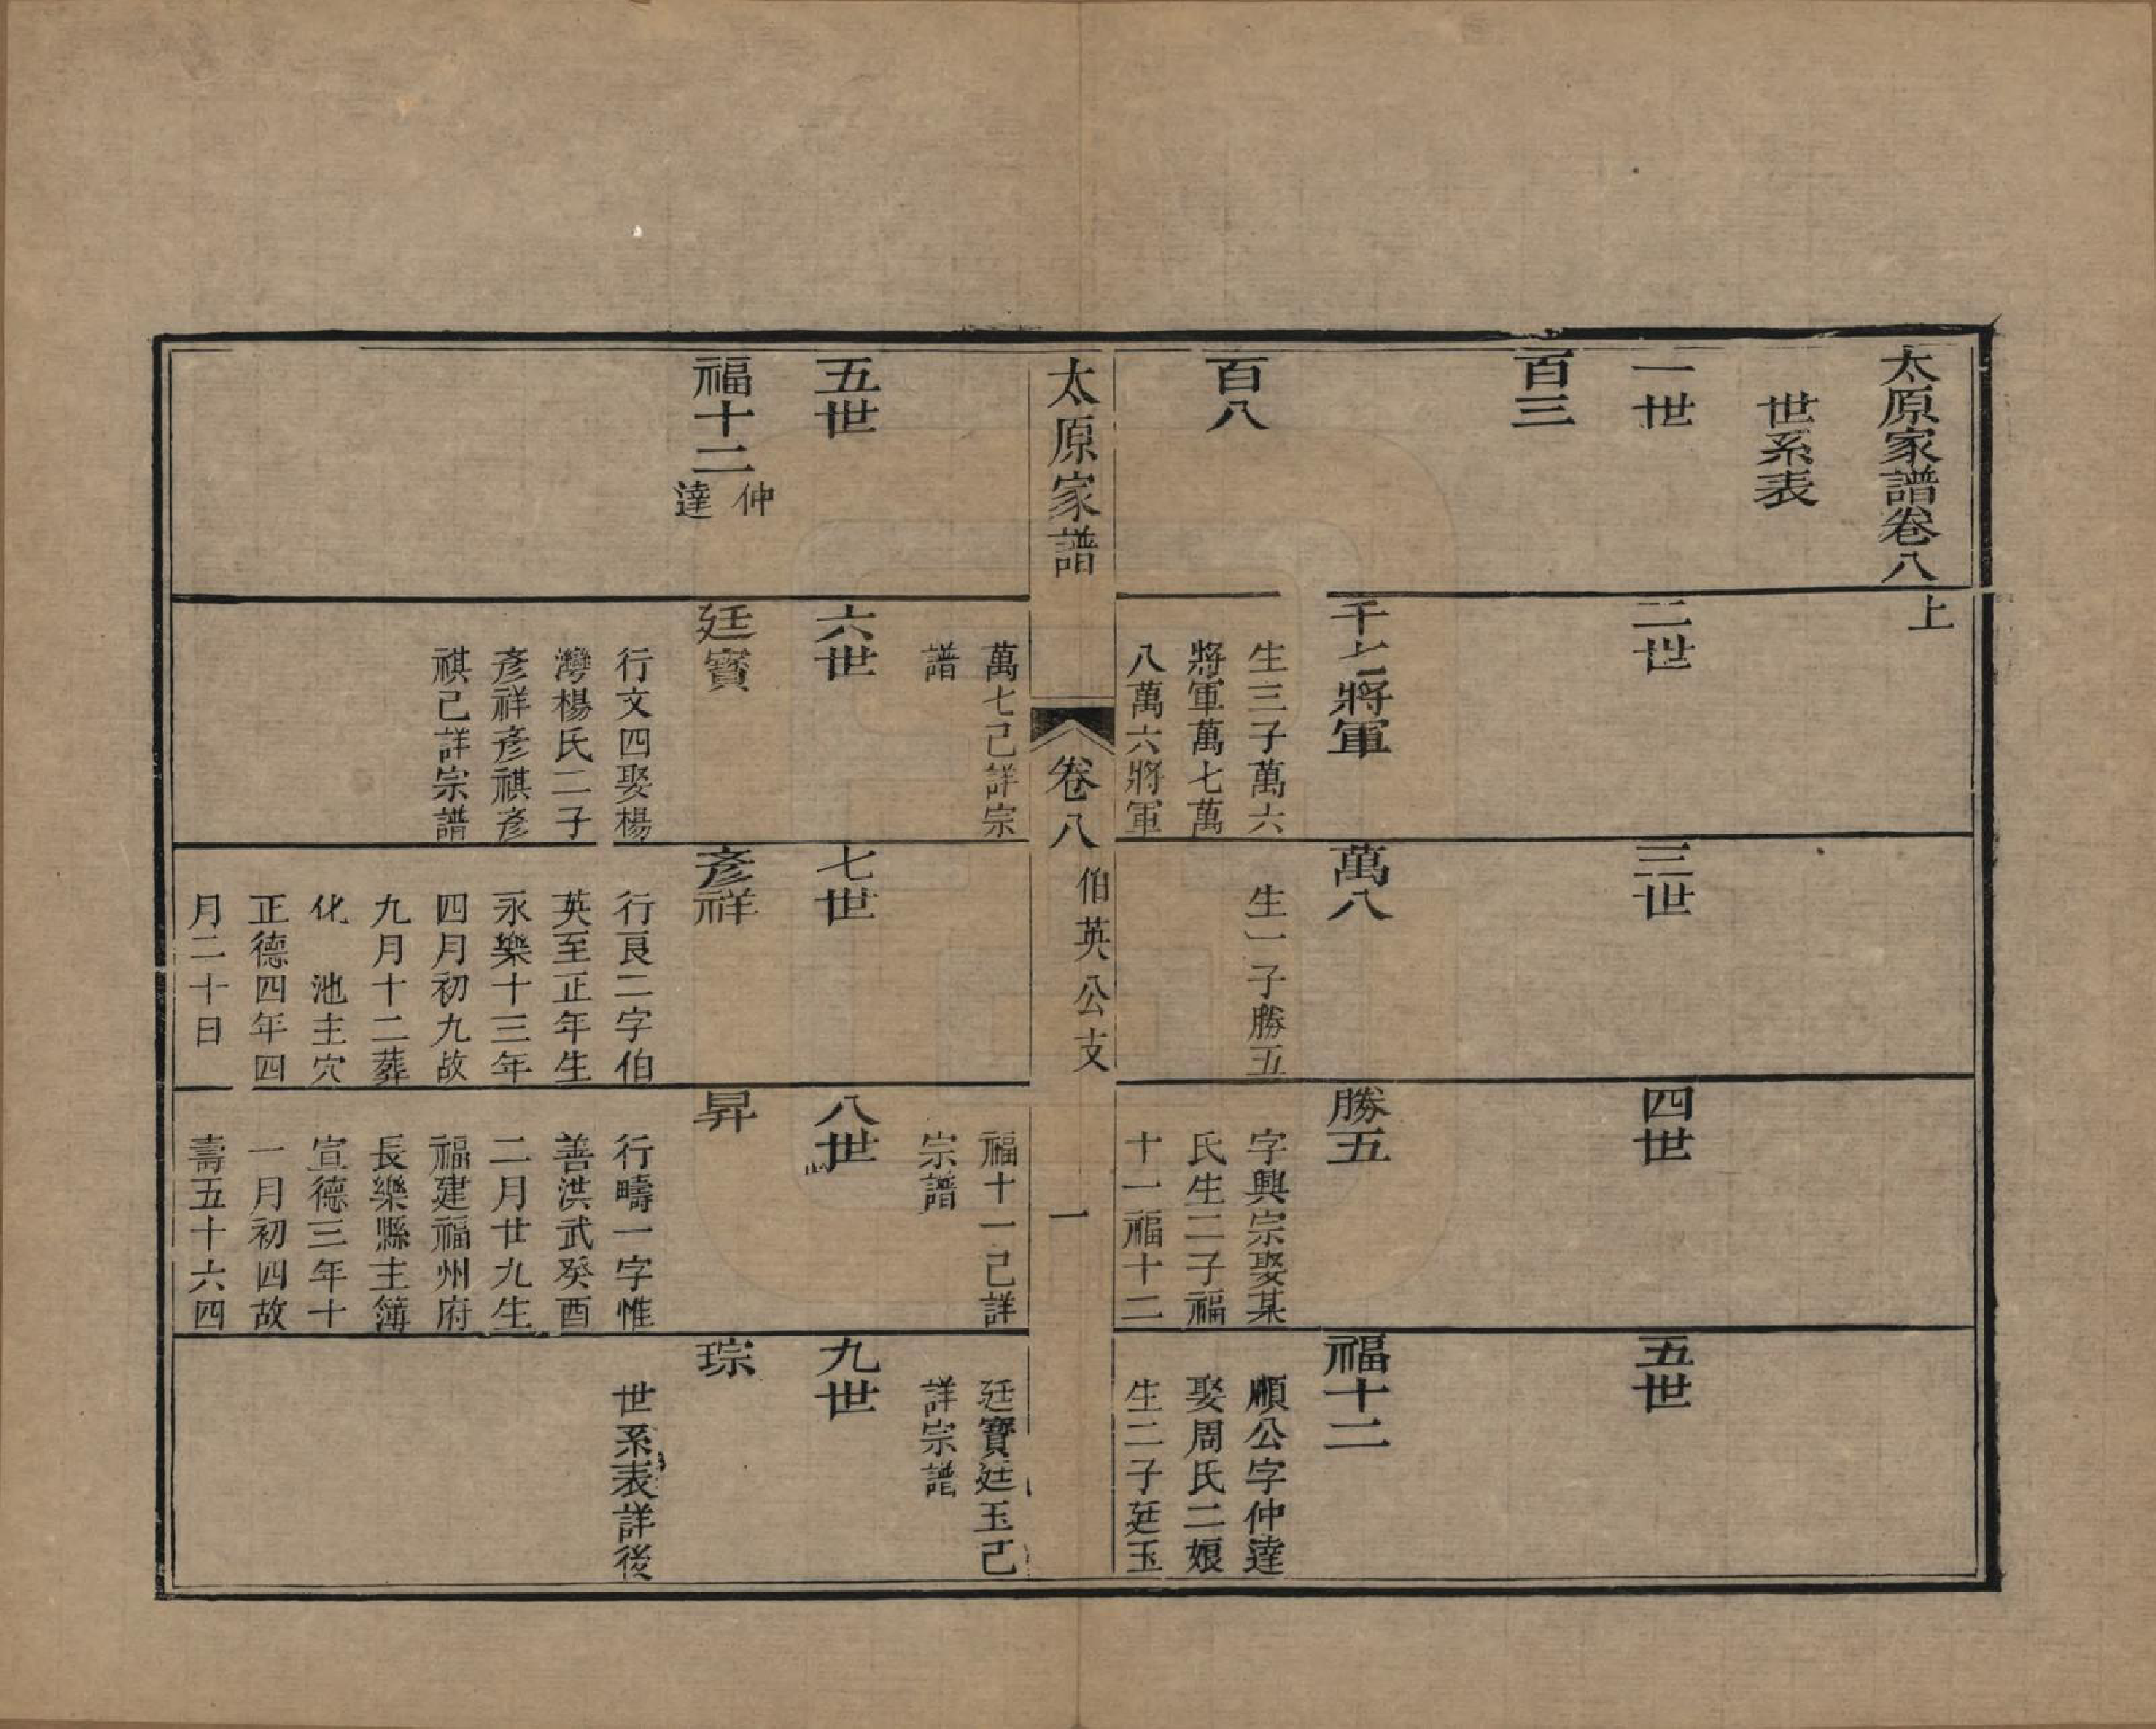 太原家譜卷八上
世系表
一世
二世
三世
四世
五世
百三
千七將軍
萬八
勝五
福十二
百八
生三子萬六
將軍萬七萬
八萬六將軍
萬七己詳宗
譜
生一子勝五
字興宗娶某
氏生二子福
十一福十二
福十一己詳
宗譜
順公字仲達
娶周氏二娘
生二子廷玉
廷寶廷玉己
詳宗譜
太原家譜
卷八
伯英公支
一
五世
六世
七世
八世
九世
福十二仲達
廷寶
行文四娶楊
灣楊氏二子
彥祥彥祺彥
祺己詳宗譜
彥祥
行良二字伯
英至正年生
永樂十三年
四月初九故
九月十二葬
化 池主穴
正德四年四
月二十日
昇
行疇一字惟
善洪武癸酉
二月廿九生
福建福州府
長樂縣主簿
宣德三年十
一月初四故
壽五十六四
琮
世系表詳後